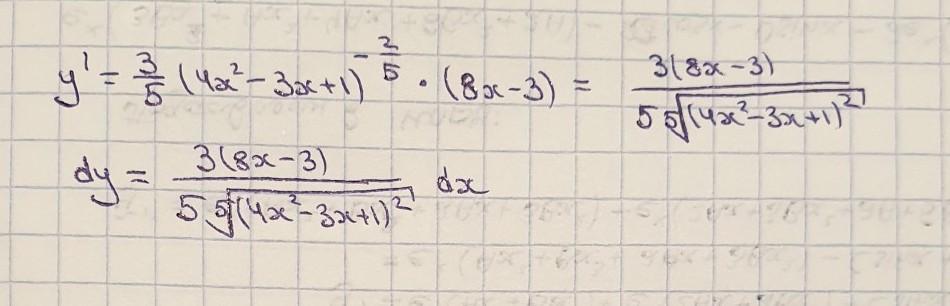 y' = 3/5 (4x² - 3x + 1)^(-2/5) · (8x - 3) = 3(8x - 3) / (5 ⁵√((4x² - 3x + 1)²))
dy = 3(8x - 3) / (5 ⁵√((4x² - 3x + 1)²)) dx